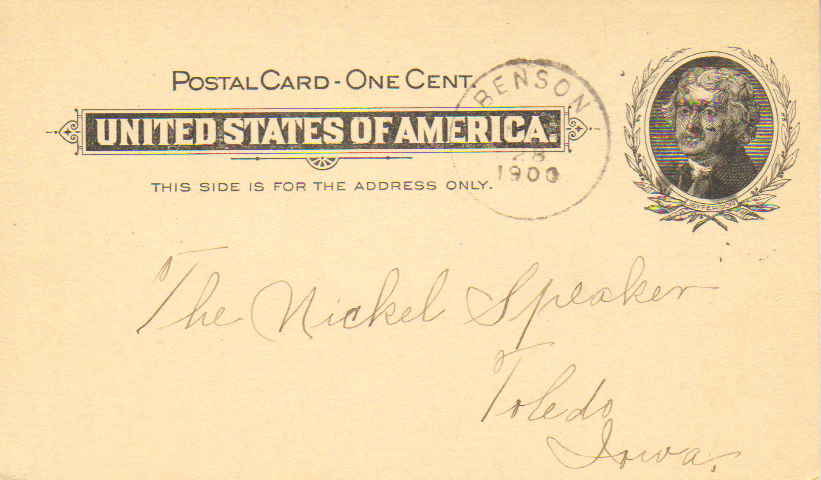 POSTAL CARD - ONE CENT.
UNITED STATES OF AMERICA.
THIS SIDE IS FOR THE ADDRESS ONLY.
BENSON
28
1900
The Nickel Speaker
Toledo
Iowa.